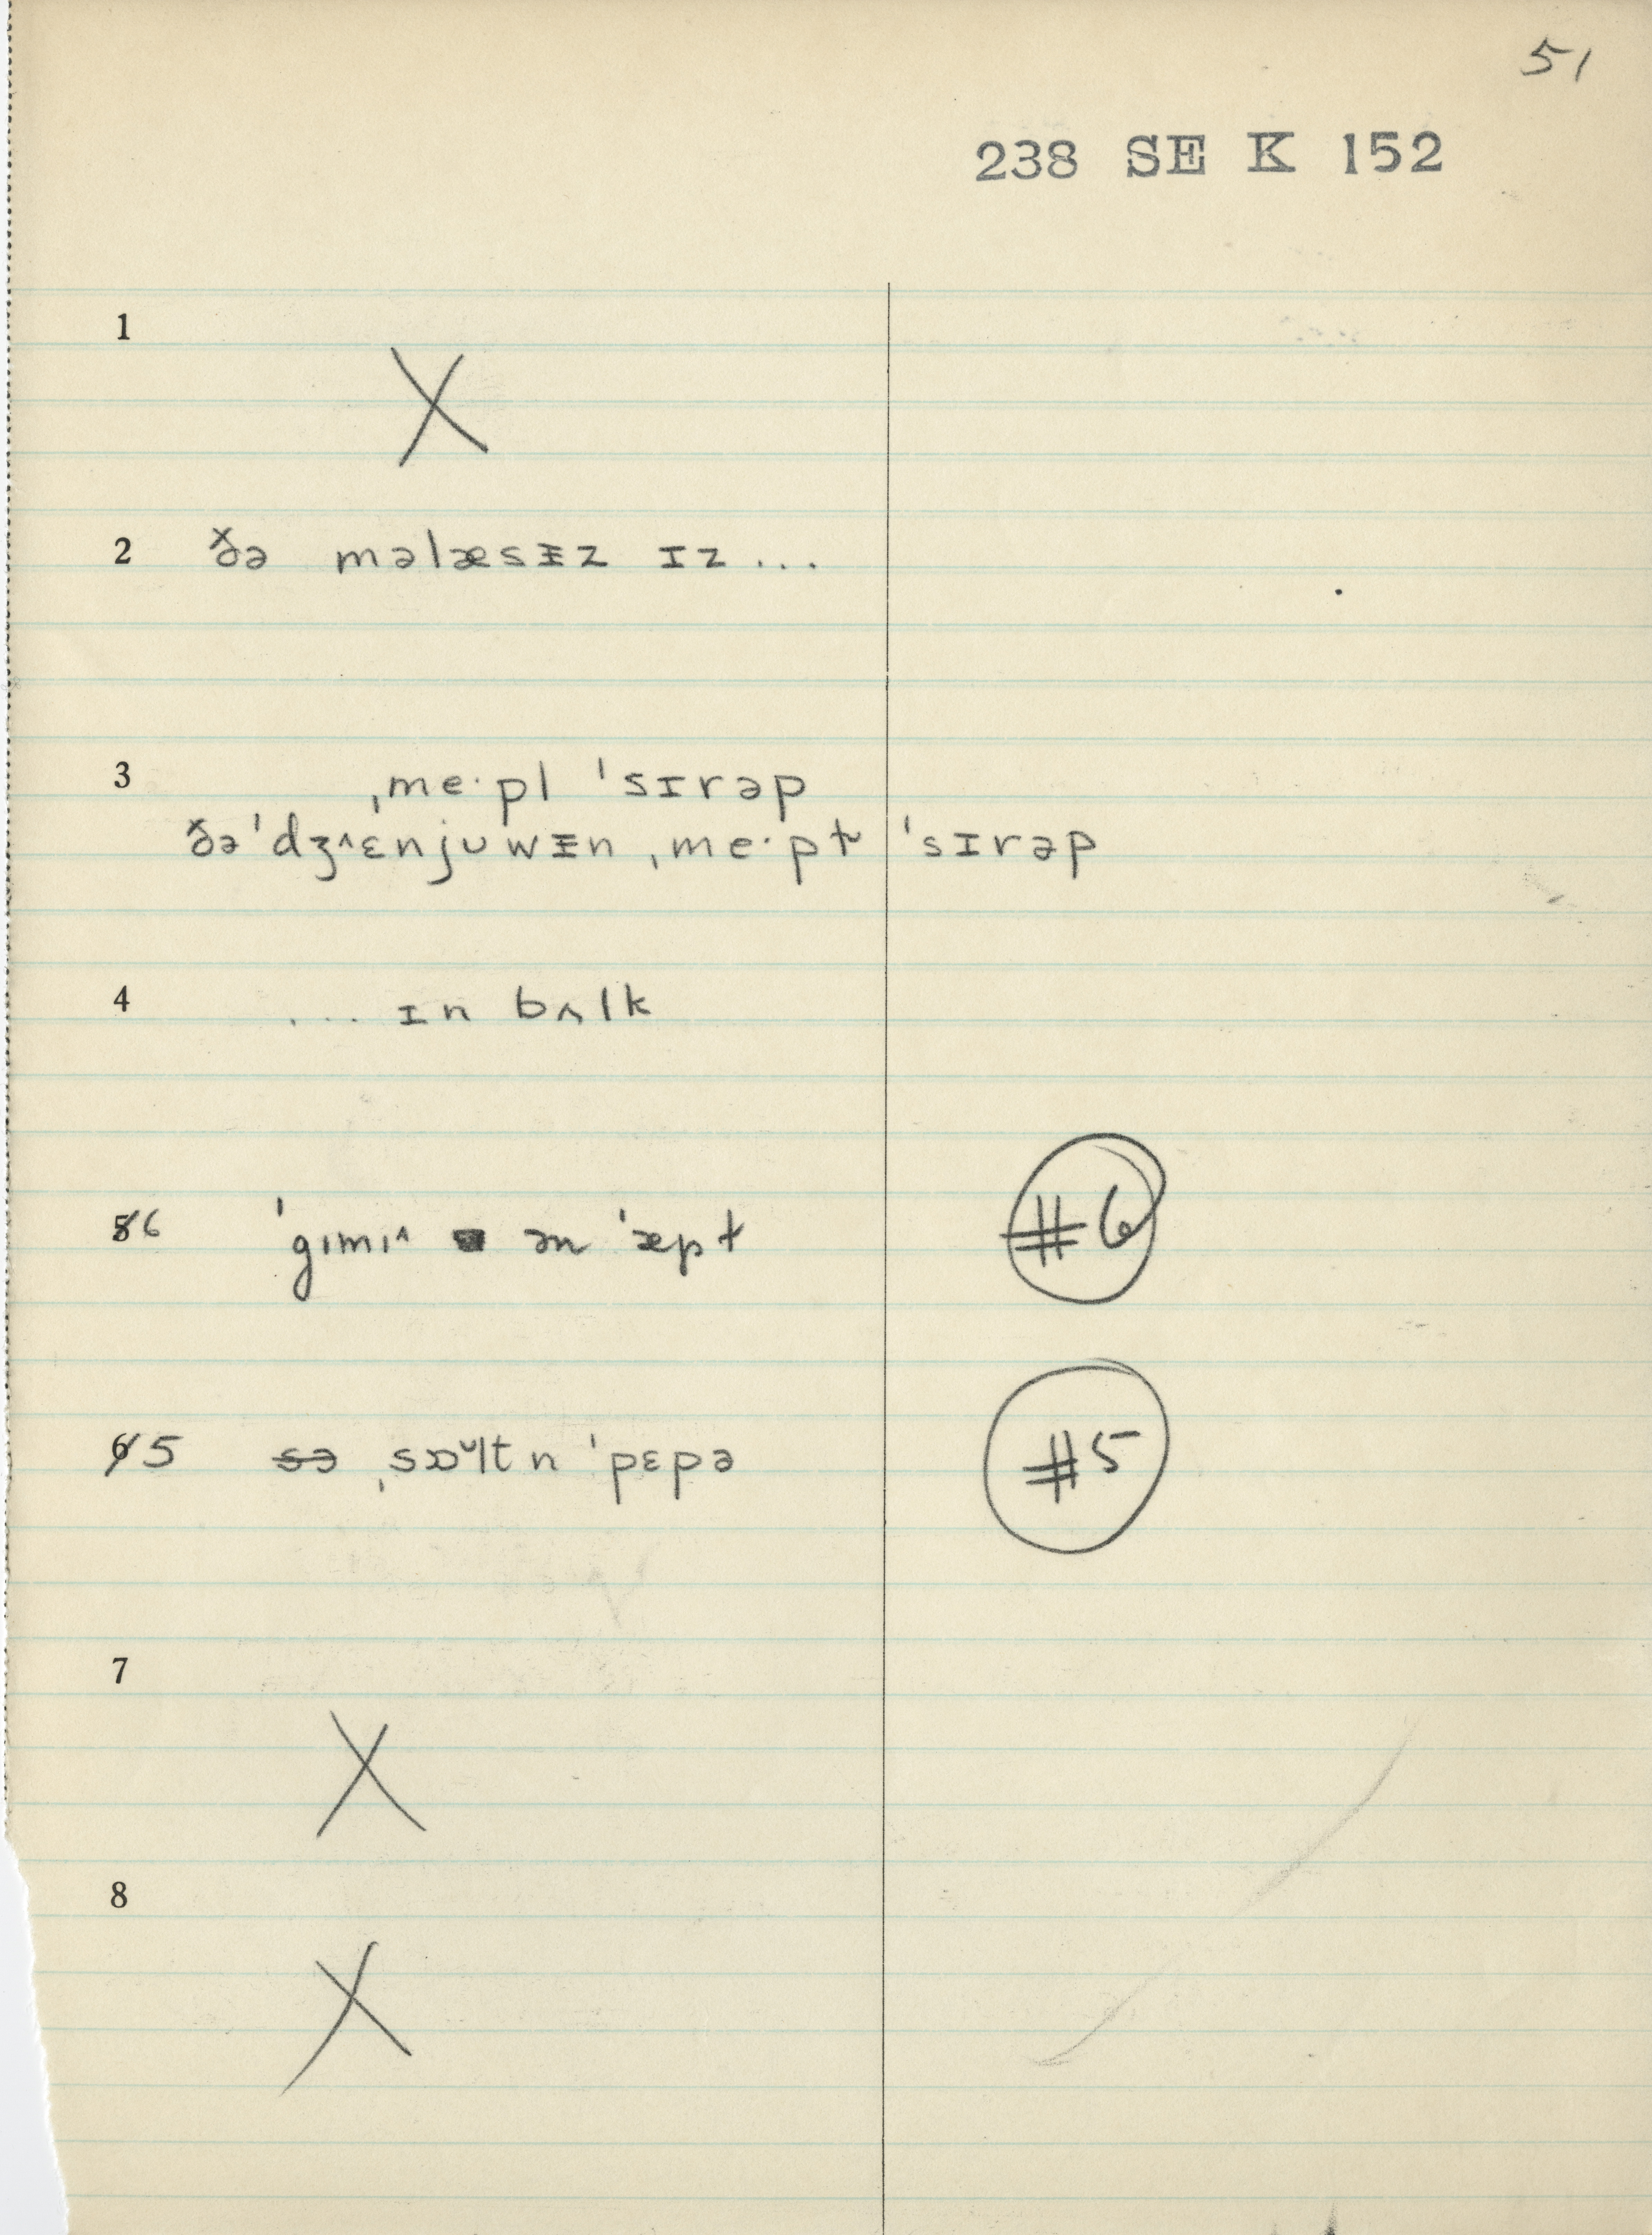 51
238 SE K 152
1
X
2 ðə məlæsɪ̵z ɪz ...
3 ˌmeˑpl ˈsɪrəp
ðəˈdʒ^ɛnjʊwɪ̵n ˌmeˑpɫ ˈsɪrəp
4 ... ɪn bʌlk
5 6 ˈgɪmɪ^ ən ˈæpɫ #6
6 5 sə ˌsɒᶷltn ˈpɛpə #5
7
X
8
X